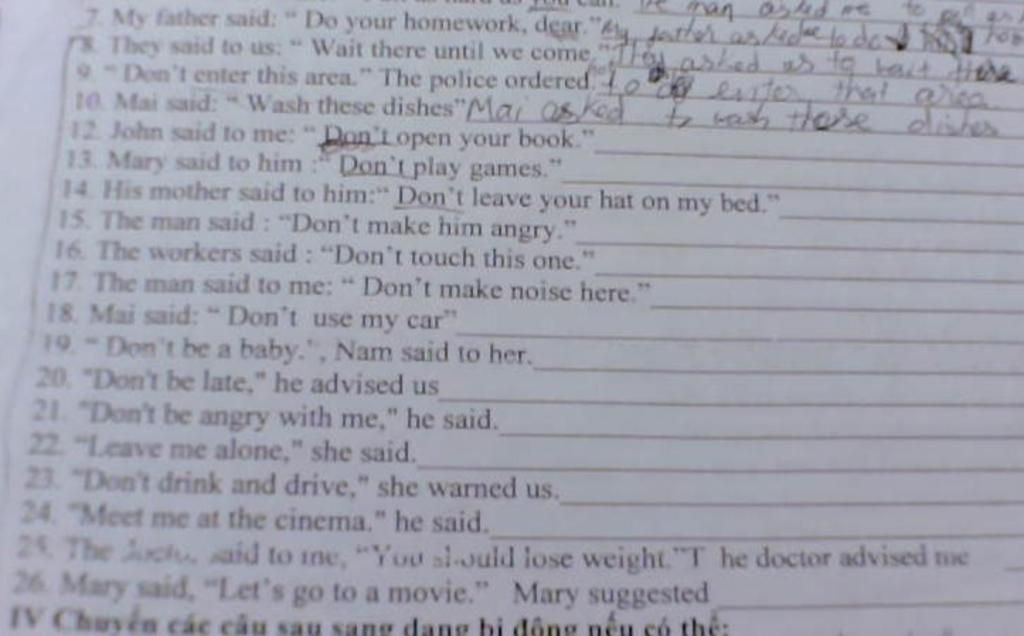 7. My father said: “ Do your homework, dear.” My father asked me to do
8. They said to us: “ Wait there until we come.” They asked us to wait there
9. “ Don't enter this area.” The police ordered. to enter that area
10. Mai said: “ Wash these dishes” Mai asked to wash those dishes
12. John said to me: “ Don't open your book.”
13. Mary said to him :“ Don't play games.”
14. His mother said to him:“ Don't leave your hat on my bed.”
15. The man said : “Don't make him angry.”
16. The workers said : “Don't touch this one.”
17. The man said to me: “ Don't make noise here.”
18. Mai said: “ Don't use my car”
19. “ Don't be a baby.”, Nam said to her.
20. "Don't be late," he advised us
21. "Don't be angry with me," he said.
22. “Leave me alone," she said.
23. "Don't drink and drive," she warned us.
24. "Meet me at the cinema." he said.
25. The said to me, “You should lose weight.”T he doctor advised me
26. Mary said, “Let's go to a movie.” Mary suggested
IV Chuyển các câu sau sang dạng bị động nếu có thể: